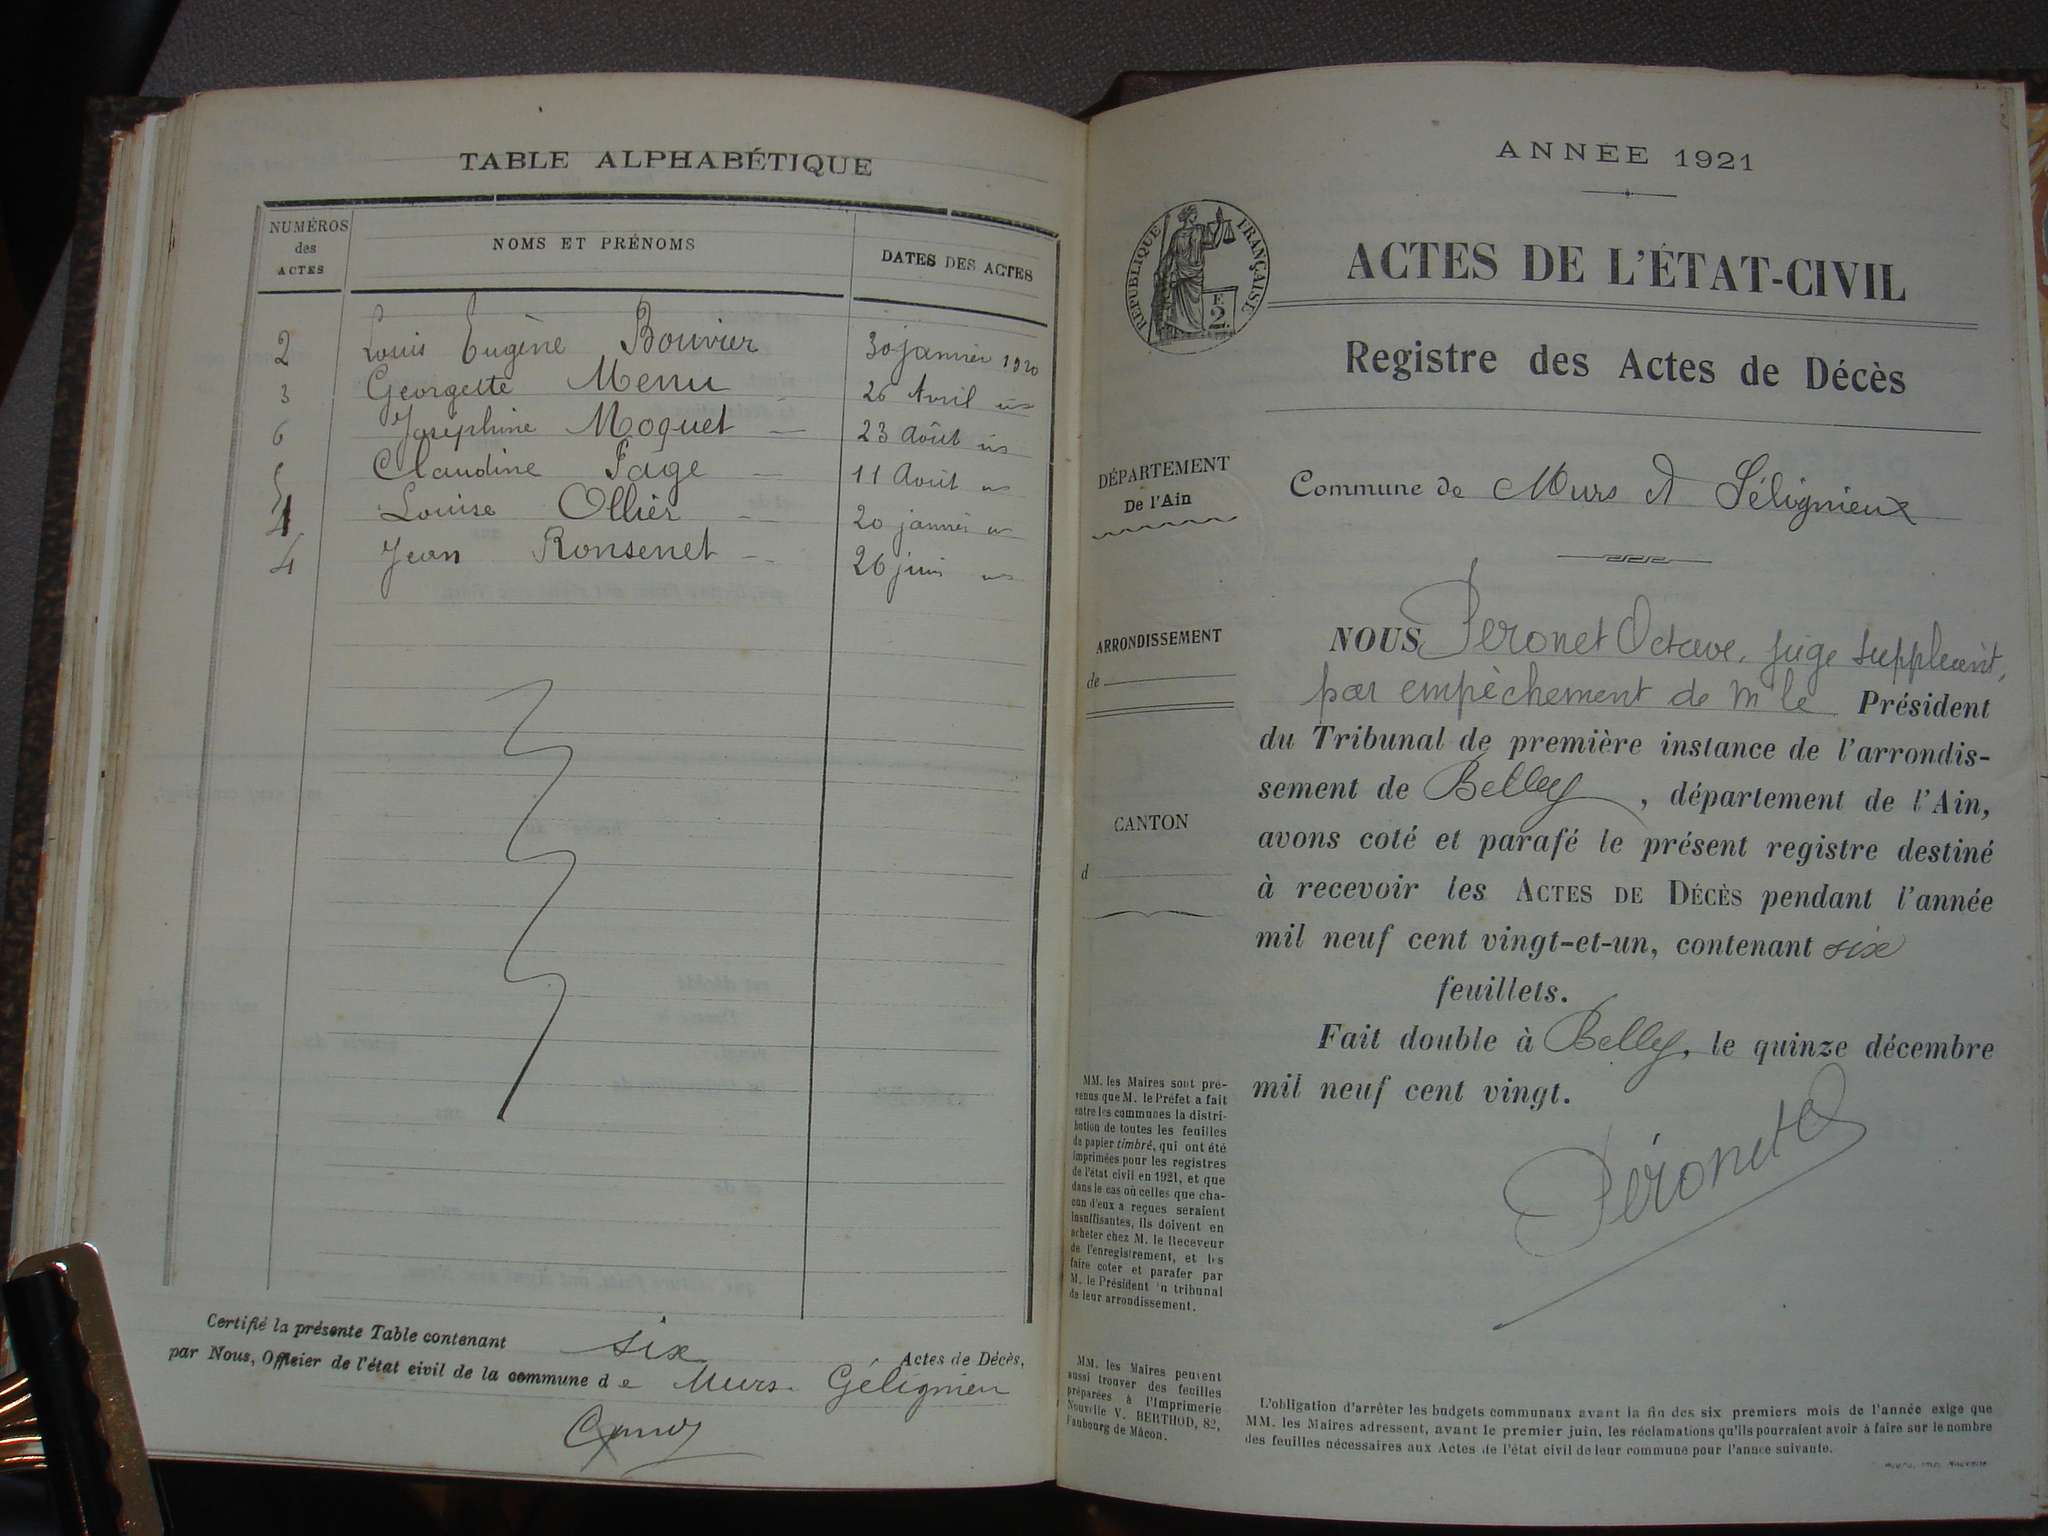 TABLE ALPHABÉTIQUE
NUMÉROS des ACTES
NOMS ET PRÉNOMS
DATES DES ACTES
2 Louis Eugène Bouvier 30 janvier 1920
3 Georgette Menu 26 Avril
6 Joséphine Moquet 23 Août
5 Claudine Page 11 Août
1 Louise Ollier 20 janvier
4 Jean Ronsenet 26 juin
Certifié la présente Table contenant six Actes de Décès,
par Nous, Officier de l'état civil de la commune de Murs Gélignieu
ANNÉE 1921
RÉPUBLIQUE FRANÇAISE
F.
2.
ACTES DE L'ÉTAT-CIVIL
Registre des Actes de Décès
DÉPARTEMENT
De l'Ain
ARRONDISSEMENT
de
CANTON
d
MM. les Maires sont pré-
venus que M. le Préfet a fait
entre les communes la distri-
bution de toutes les feuilles
de papier timbré, qui ont été
imprimées pour les registres
de l'état civil en 1921, et que
dans le cas où celles que cha-
cun d'eux a reçues seraient
insuffisantes, ils doivent en
acheter chez M. le Receveur
de l'enregistrement, et les
faire coter et parafer par
M. le Président du tribunal
de leur arrondissement.
MM. les Maires peuvent
aussi trouver des feuilles
préparées à l'Imprimerie
Nouvelle V. BERTHOD, 82,
Faubourg de Mâcon.
Commune de Murs et Gélignieux
NOUS Péronet Octave, juge suppléant,
par empêchement de M le Président
du Tribunal de première instance de l'arrondis-
sement de Belley, département de l'Ain,
avons coté et parafé le présent registre destiné
à recevoir les ACTES DE DÉCÈS pendant l'année
mil neuf cent vingt-et-un, contenant six
feuillets.
Fait double à Belley, le quinze décembre
mil neuf cent vingt.
Péronet
L'obligation d'arrêter les budgets communaux avant la fin des six premiers mois de l'année exige que
MM. les Maires adressent, avant le premier juin, les réclamations qu'ils pourraient avoir à faire sur le nombre
des feuilles nécessaires aux Actes de l'état civil de leur commune pour l'année suivante.